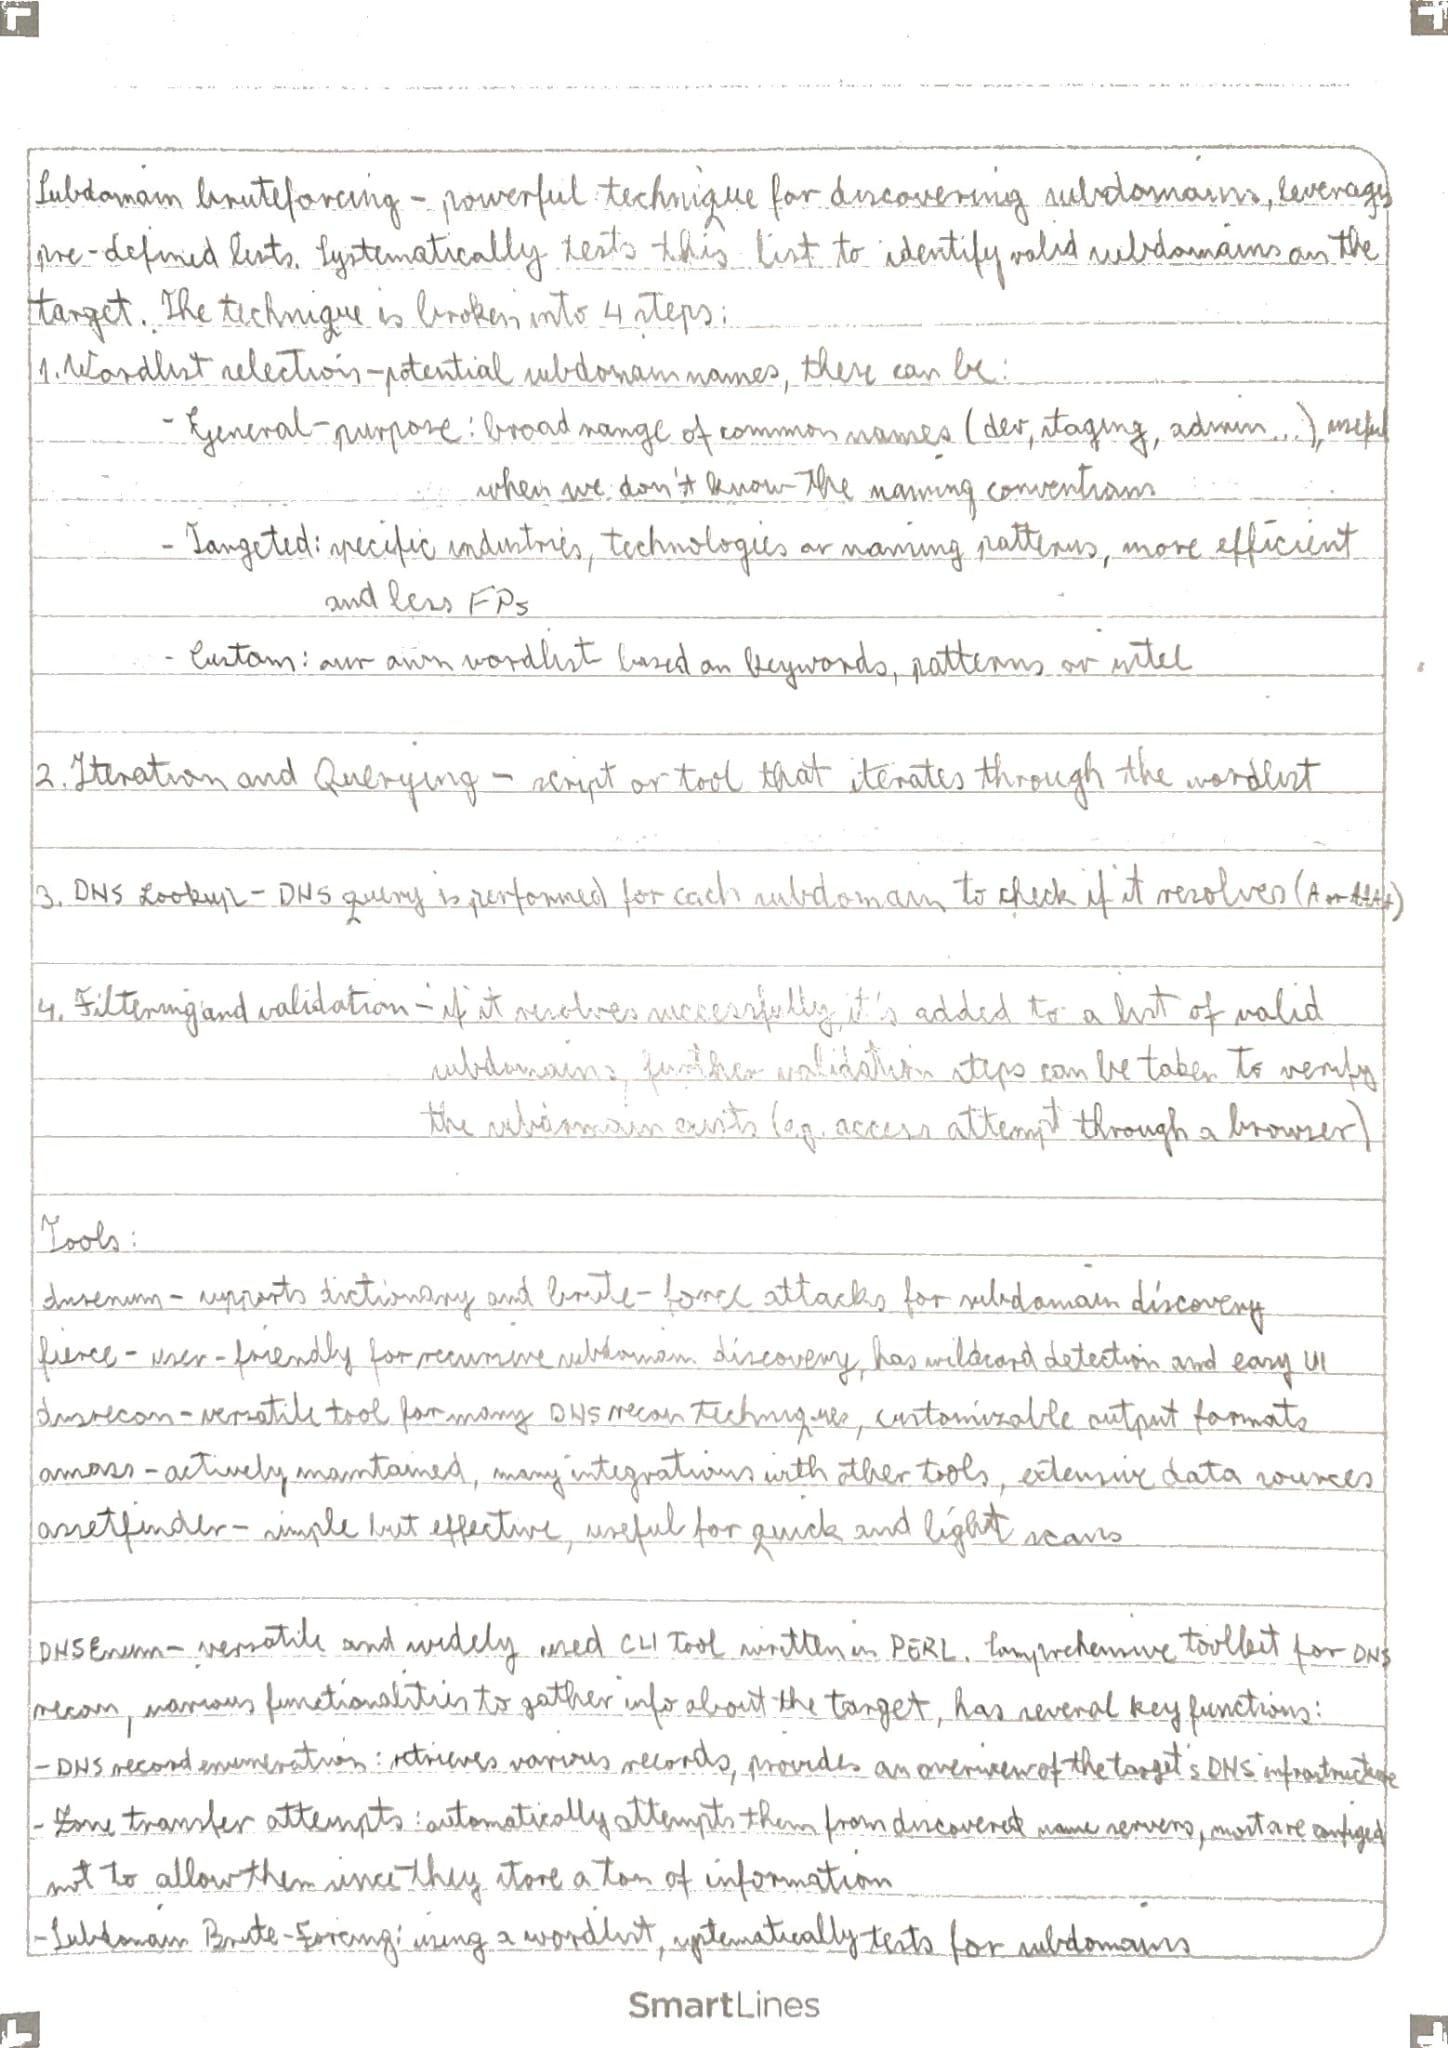 Subdomain bruteforcing - powerful technique for discovering subdomains, leverages
pre-defined lists. Systematically tests this list to identify valid subdomains on the
target. The technique is broken into 4 steps:
1. Wordlist selection - potential subdomain names, there can be:
- General-purpose: broad range of common names (dev, staging, admin...), useful
when we don't know the naming conventions
- Targeted: specific industries, technologies or naming patterns, more efficient
and less FPs
- Custom: our own wordlist based on keywords, patterns or intel
2. Iteration and Querying - script or tool that iterates through the wordlist
3. DNS Lookup - DNS query is performed for each subdomain to check if it resolves (A or AAAA)
4. Filtering and validation - if it resolves successfully, it's added to a list of valid
subdomains, further validation steps can be taken to verify
the subdomain exists (e.g. access attempt through a browser)
Tools:
dnsenum - supports dictionary and brute-force attacks for subdomain discovery
fierce - user-friendly for recursive subdomain discovery, has wildcard detection and easy UI
dnsrecon - versatile tool for many DNS recon techniques, customizable output formats
amass - actively maintained, many integrations with other tools, extensive data sources
assetfinder - simple but effective, useful for quick and light scans
DNSEnum - versatile and widely used CLI tool written in PERL. Comprehensive toolkit for DNS
recon, various functionalities to gather info about the target, has several key functions:
- DNS record enumeration: retrieves various records, provides an overview of the target's DNS infrastructure
- Zone transfer attempts: automatically attempts them from discovered name servers, most are configed
not to allow them since they store a ton of information
- Subdomain Brute-Forcing: using a wordlist, systematically tests for subdomains
SmartLines